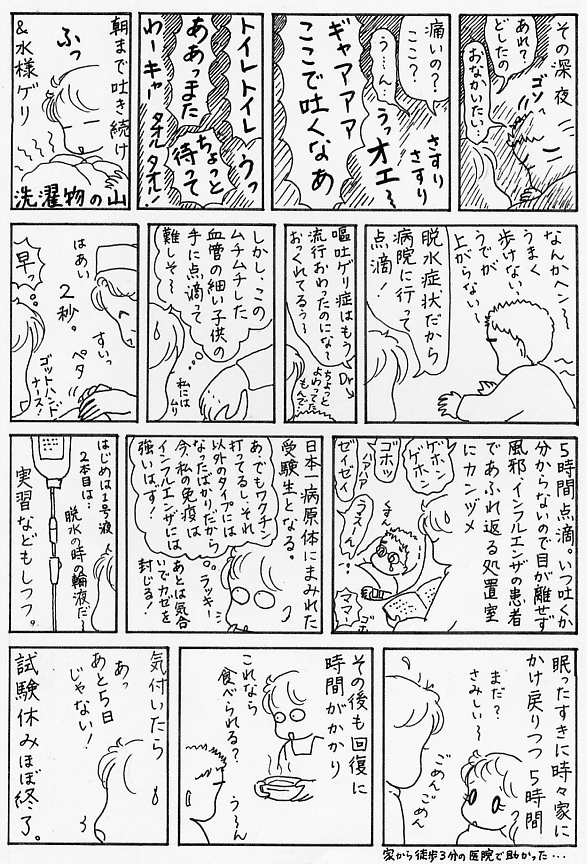 その深夜
あれ？
どしたの
おなかいたい…
ゴソッ
痛いの？
ここ？
さすり
さすり
う…ん…うっオエ〜
ギャアアア
ここで吐くなあ
トイレトイレ
うっ
ああっまた
ちょっと
待って
わーキャー
タオルタオル！
朝まで吐き続け
ふっ
&水様ゲリ
洗濯物の山
なんかヘン〜
うまく
歩けない、
うでが
上がらない
脱水症状だから
病院に行って
点滴！
嘔吐ゲリ症はもう
流行おわったのにな〜
おっくれてるぅ〜
Dr
ちょっと
よわってた
もんで
しかし、この
ムチムチした
血管の細い子供の
手に点滴って
難しそ〜
私には
ムリ
はあい
2秒。
すいっ
ペタ
早っ
ゴットハンド
ナース！
5時間点滴。いつ吐くか
分からないので目が離せず
風邪、インフルエンザの患者
であふれ返る処置室
にカンヅメ
ゲホン
ゲホン
ゴホッ
ハアハア
ゼイゼイ
くすん
うえ〜ん
ママー
ゴホ
日本一病原体にまみれた
受験生となる。
あ、でもワクチン
打ってるし、それ
以外のタイプには
なったばかりだから
今、私の免疫は
インフルエンザには
強いはず！
ラッキー
あとは気合
いでカゼを
封じる！
はじめは1号液
2本目は…
脱水の時の輸液だ〜
実習などもしつつ。
眠ったすきに時々家に
かけ戻りつつ5時間
まだ？
さみしい〜
ごめんごめん
家から徒歩3分の医院で助かった…
その後も回復に
時間がかかり
これなら
食べられる？
う〜ん
気付いたら
あっ
あと5日
じゃない！
試験休みほぼ終了。